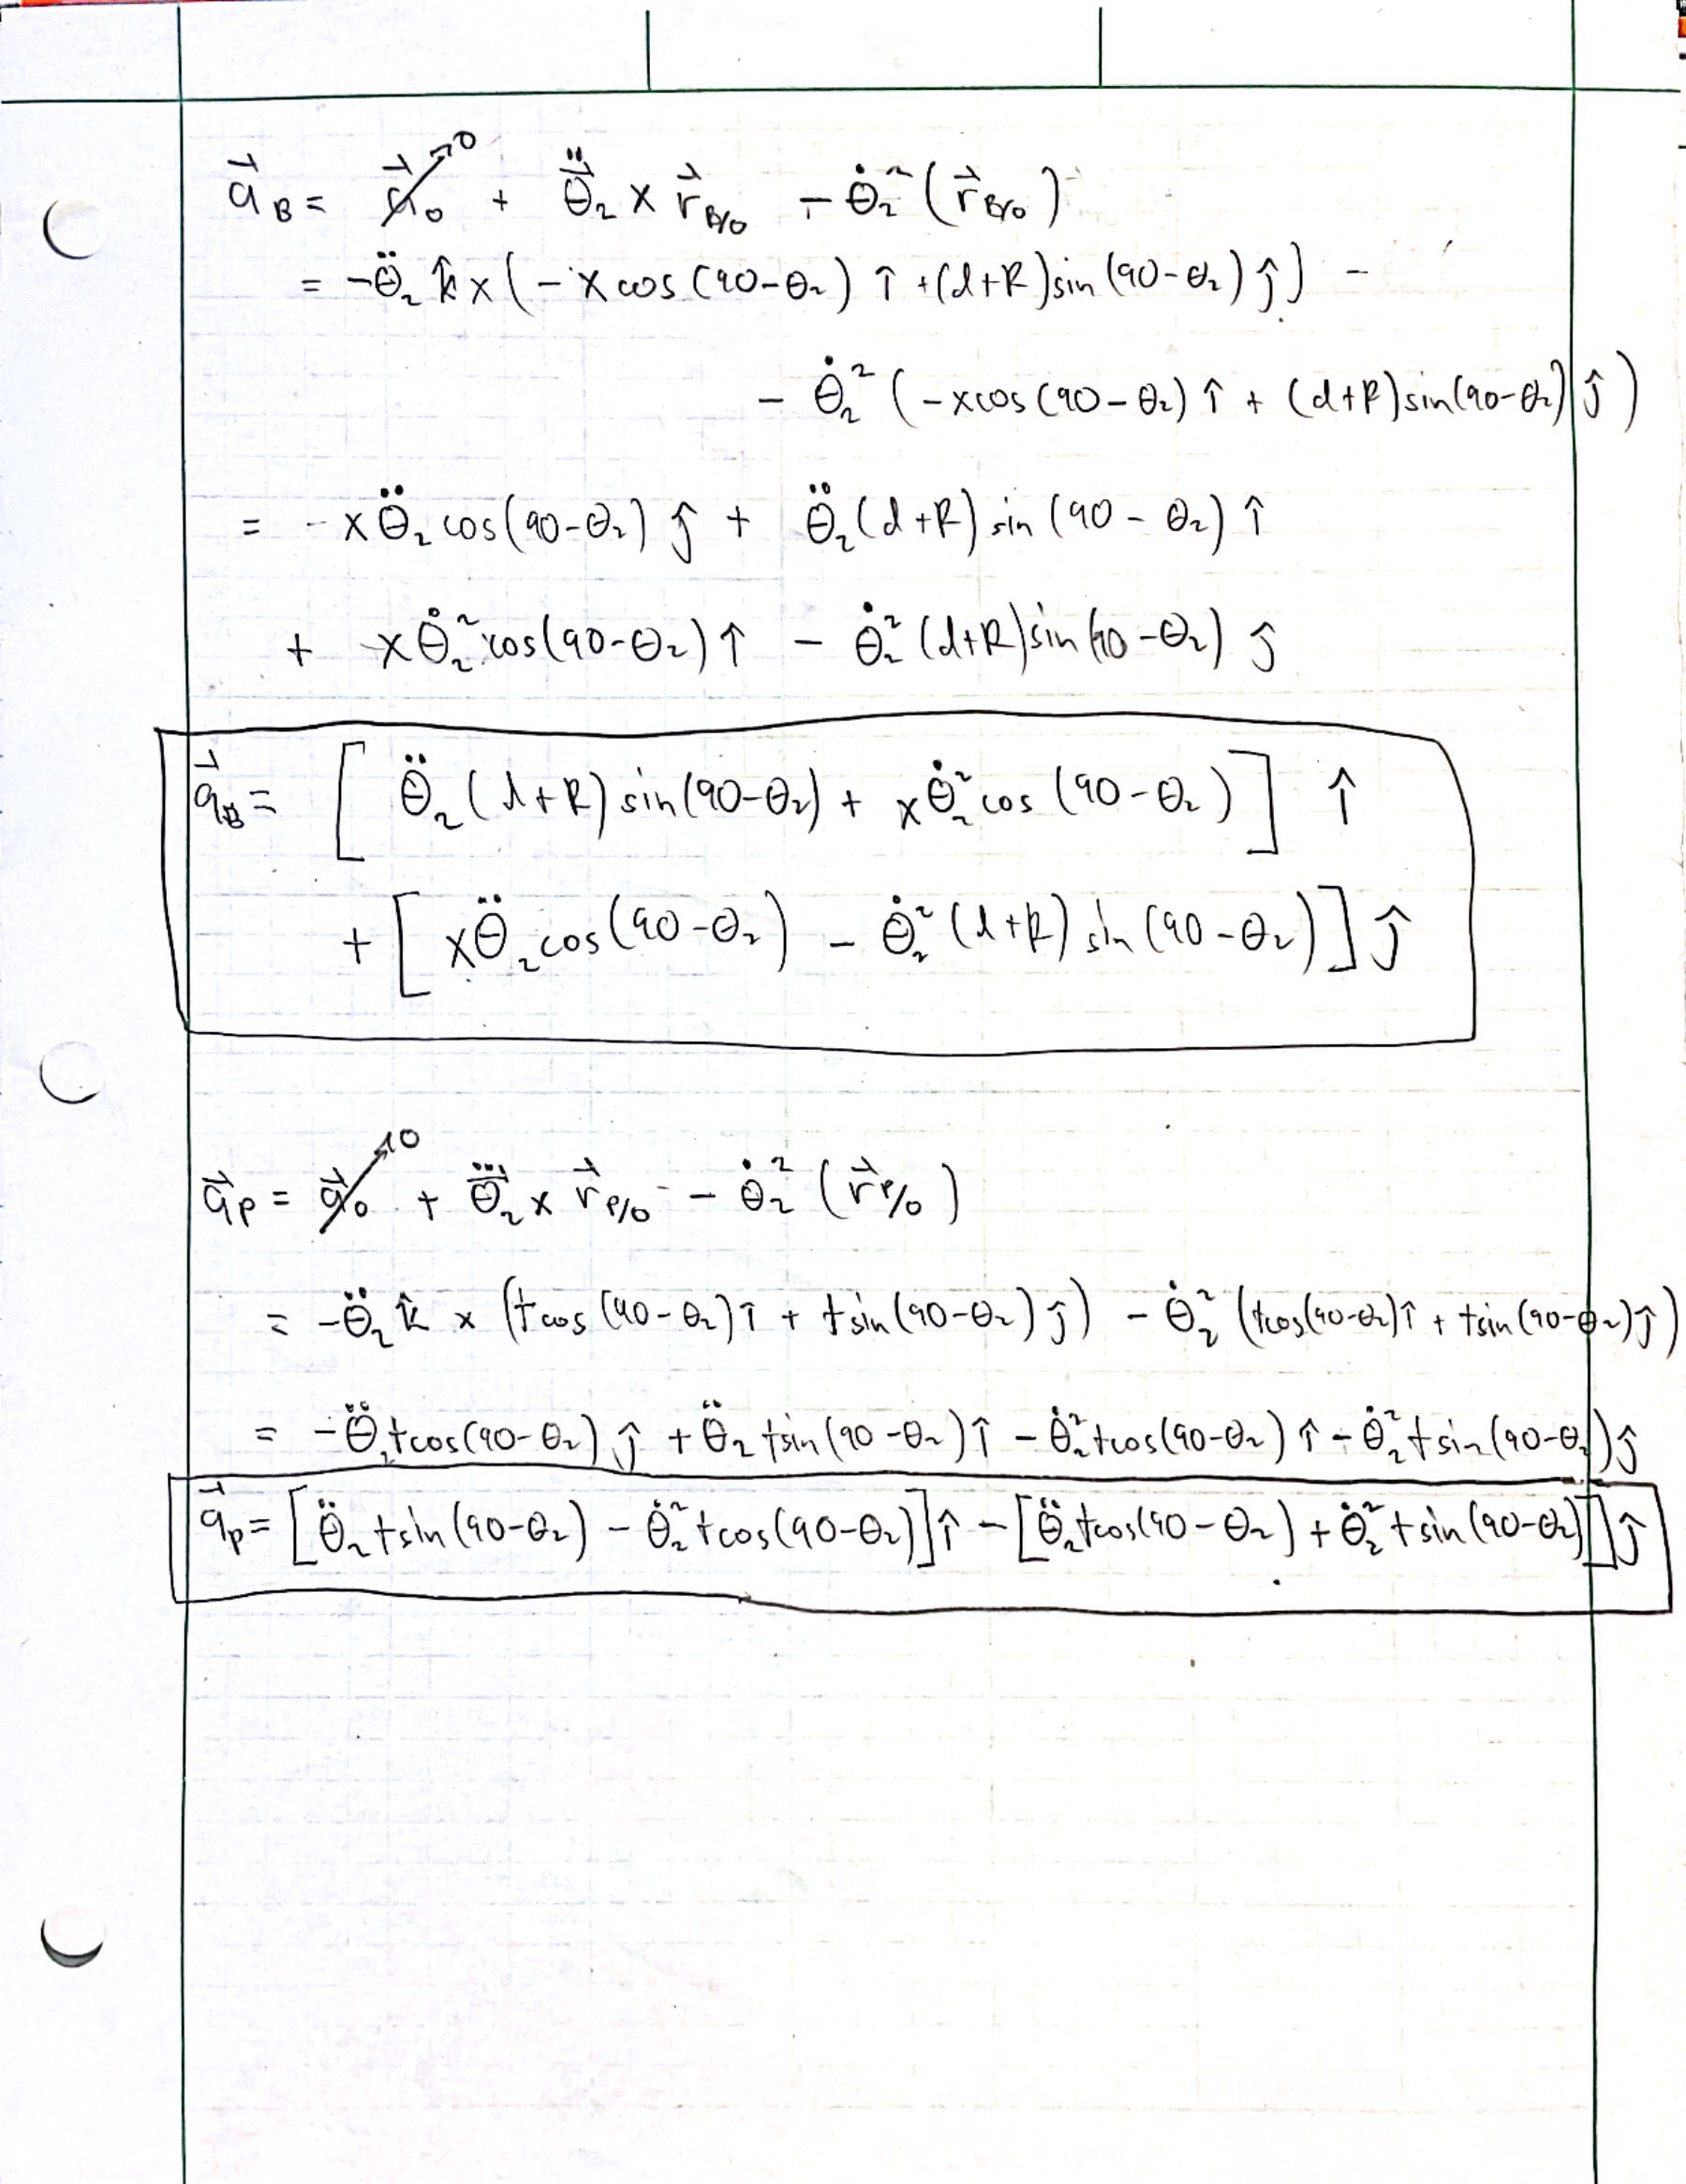 a⃗_B = a⃗_o → 0 + θ̈⃗₂ × r⃗_B/o − θ̇₂² (r⃗_B/o)
= −θ̈₂ k̂ × (−x cos(90−θ₂) î + (d+R) sin(90−θ₂) ĵ) −
− θ̇₂² (−x cos(90−θ₂) î + (d+R) sin(90−θ₂) ĵ)
= −xθ̈₂ cos(90−θ₂) ĵ + θ̈₂ (d+R) sin(90−θ₂) î
+ xθ̇₂² cos(90−θ₂) î − θ̇₂² (d+R) sin(90−θ₂) ĵ
a⃗_B = [θ̈₂ (d+R) sin(90−θ₂) + xθ̇₂² cos(90−θ₂)] î
+ [xθ̈₂ cos(90−θ₂) − θ̇₂² (d+R) sin(90−θ₂)] ĵ
a⃗_P = a⃗_o → 0 + θ̈⃗₂ × r⃗_P/o − θ̇₂² (r⃗_P/o)
= −θ̈₂ k̂ × (t cos(90−θ₂) î + t sin(90−θ₂) ĵ) − θ̇₂² (t cos(90−θ₂) î + t sin(90−θ₂) ĵ)
= −θ̈₂ t cos(90−θ₂) ĵ + θ̈₂ t sin(90−θ₂) î − θ̇₂² t cos(90−θ₂) î − θ̇₂² t sin(90−θ₂) ĵ
a⃗_P = [θ̈₂ t sin(90−θ₂) − θ̇₂² t cos(90−θ₂)] î − [θ̈₂ t cos(90−θ₂) + θ̇₂² t sin(90−θ₂)] ĵ